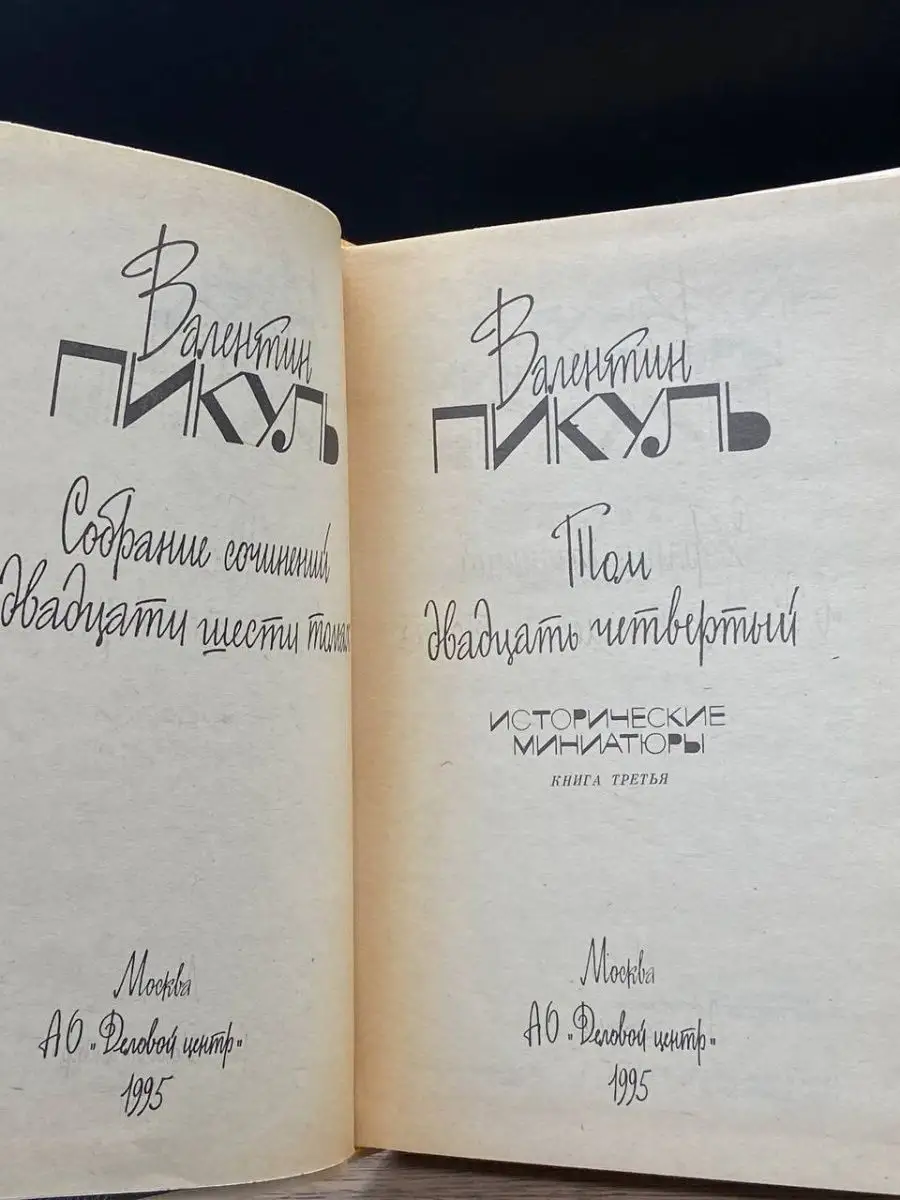 Валентин
ПИКУЛЬ
Собрание сочинений
двадцати шести томах
Москва
АО „Деловой центр"
1995
Валентин
ПИКУЛЬ
Том
двадцать четвертый
ИСТОРИЧЕСКИЕ
МИНИАТЮРЫ
КНИГА ТРЕТЬЯ
Москва
АО „Деловой центр"
1995